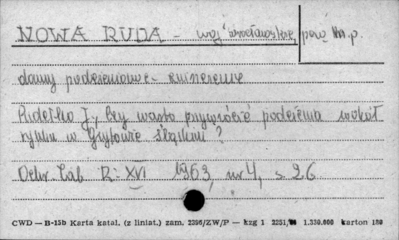 NOWA RUDA - woj. wrocławskie, pow. m.p.
domy podcieniowe - zniszczenie
Pudełko J., Czy warto przywrócić podcienia wokół
rynku w Grybowie Śląskim?
Ochr. Zab. R: XVI 1963, nr 4, s. 26
CWD — B-15b Karta katal. (z liniat.) zam. 2356/ZW/P — kzg 1 2251, 1.330.666 karton 180